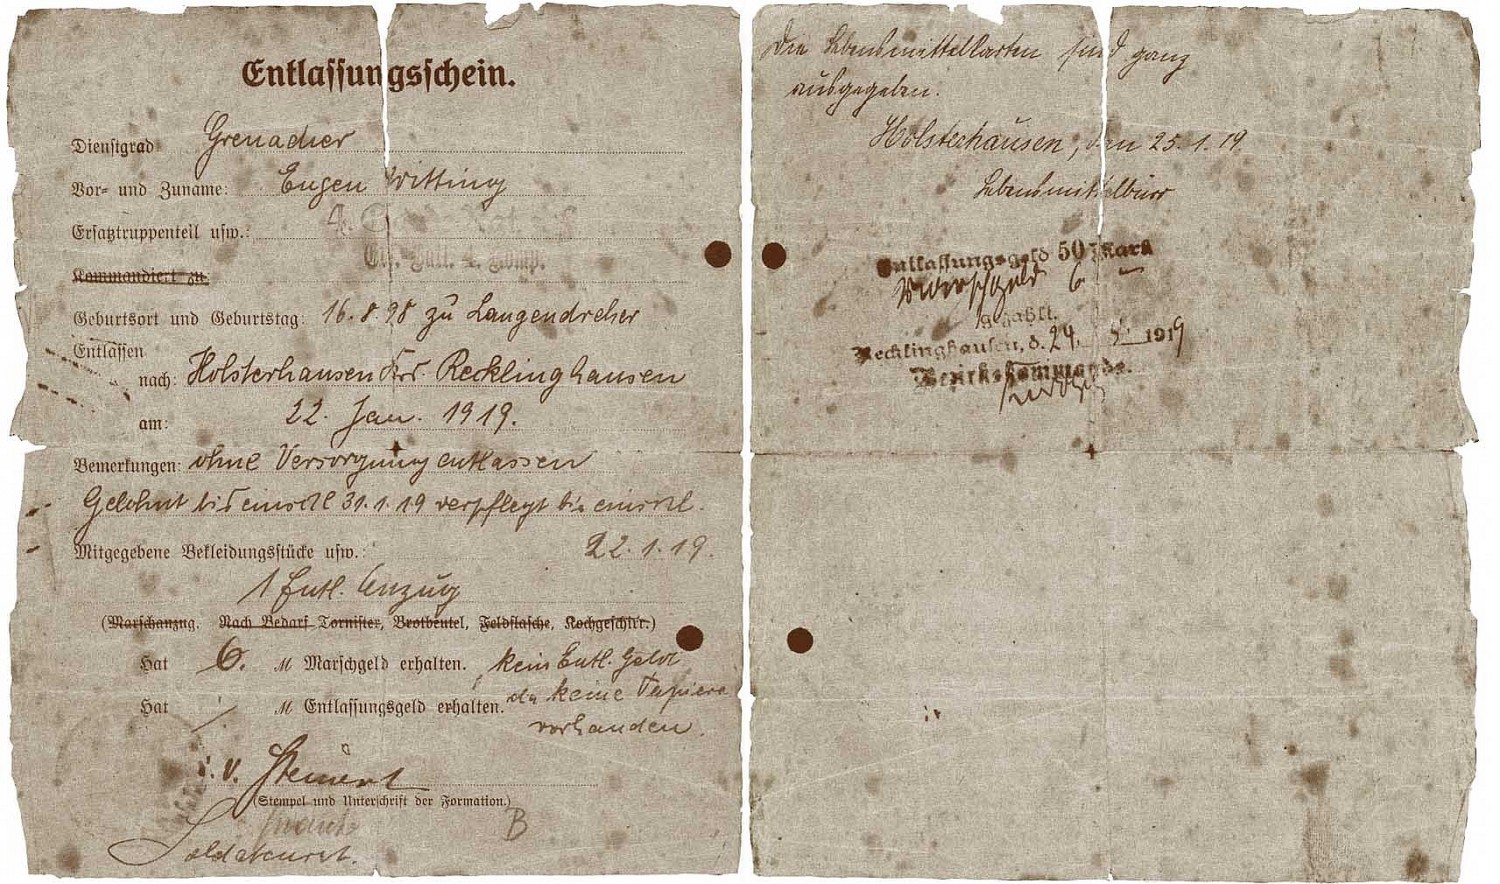 Entlassungsschein.
Dienstgrad Grenadier
Vor- und Zuname: Eugen Witting
Ersatztruppenteil usw.: 4.
Ers. Batl. 4. Komp.
Kommandiert zu
Geburtsort und Geburtstag: 16.8.98 zu Langendreher
Entlassen
nach: Holsterhausen Krs. Recklinghausen
am: 22. Jan. 1919.
Bemerkungen: ohne Versorgung entlassen
Gelohnt bis einschl 31.1.19 verpflegt bis einschl.
Mitgegebene Bekleidungsstücke usw.: 22.1.19.
1 Entl. Anzug
(Marschanzug. Nach Bedarf Tornister, Brotbeutel, Feldflasche, Kochgeschirr.)
Hat 6. M Marschgeld erhalten. kein Entl. Geld
Hat M Entlassungsgeld erhalten. da keine Papiere
vorhanden.
i. V.
(Stempel und Unterschrift der Formation.)
B
Soldatenrat.
Die Lebensmittelkarten sind ganz
ausgegeben.
Holsterhausen, den 25.1.19.
Lebensmittelbüro
Entlassungsgeld 50 Mark
Marschgeld 6 —
gezahlt.
Recklinghausen, d. 24. 1919
Bezirkskommando.